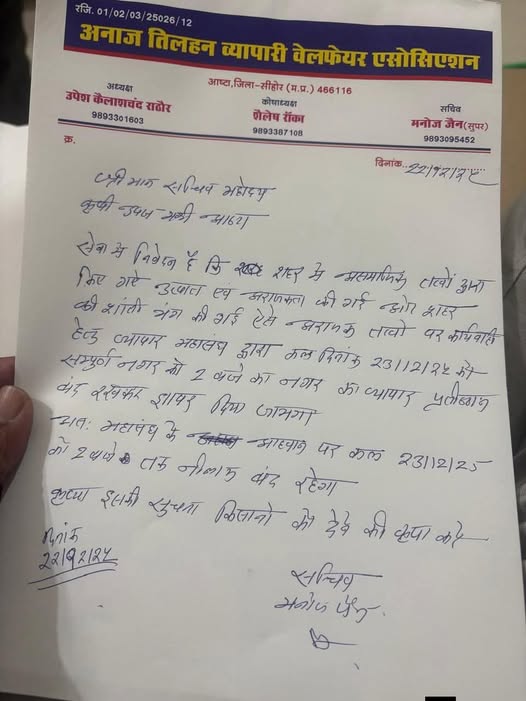 रजि. 01/02/03/25026/12
अनाज तिलहन व्यापारी वेलफेयर एसोसिएशन
आष्टा,जिला-सीहोर (म.प्र.) 466116
अध्यक्ष
उपेश कैलाशचंद राठौर
9893301603
कोषाध्यक्ष
शैलेष राँका
9893387108
सचिव
मनोज जैन(सुपर)
9893095452
क्र.
दिनांक..22/12/25
श्रीमान सचिव महोदय
कृषी उपज मंडी आष्टा
सेवा में निवेदन है कि शहर में असमाजिक तत्वों द्वारा
किए गए उत्पात एवं अराजकता की गई और शहर
की शांती भंग की गई ऐसे अराजक तत्वो पर कार्यवाही
हेतु व्यापार महासंघ द्वारा कल दिनांक 23/12/25 को
सम्पुर्ण नगर को 2 बजे का नगर का व्यापार
बंद रखकर ज्ञापन दिया जायगा
अतः महासंघ के पर कल 23/12/25
को 2 बजे तक नीलाम बंद रहेगा
कृप्या इसकी सुचना किसानो को देवे की कृपा करे
दिनांक
22/12/25
सचिव
मनोज जैन